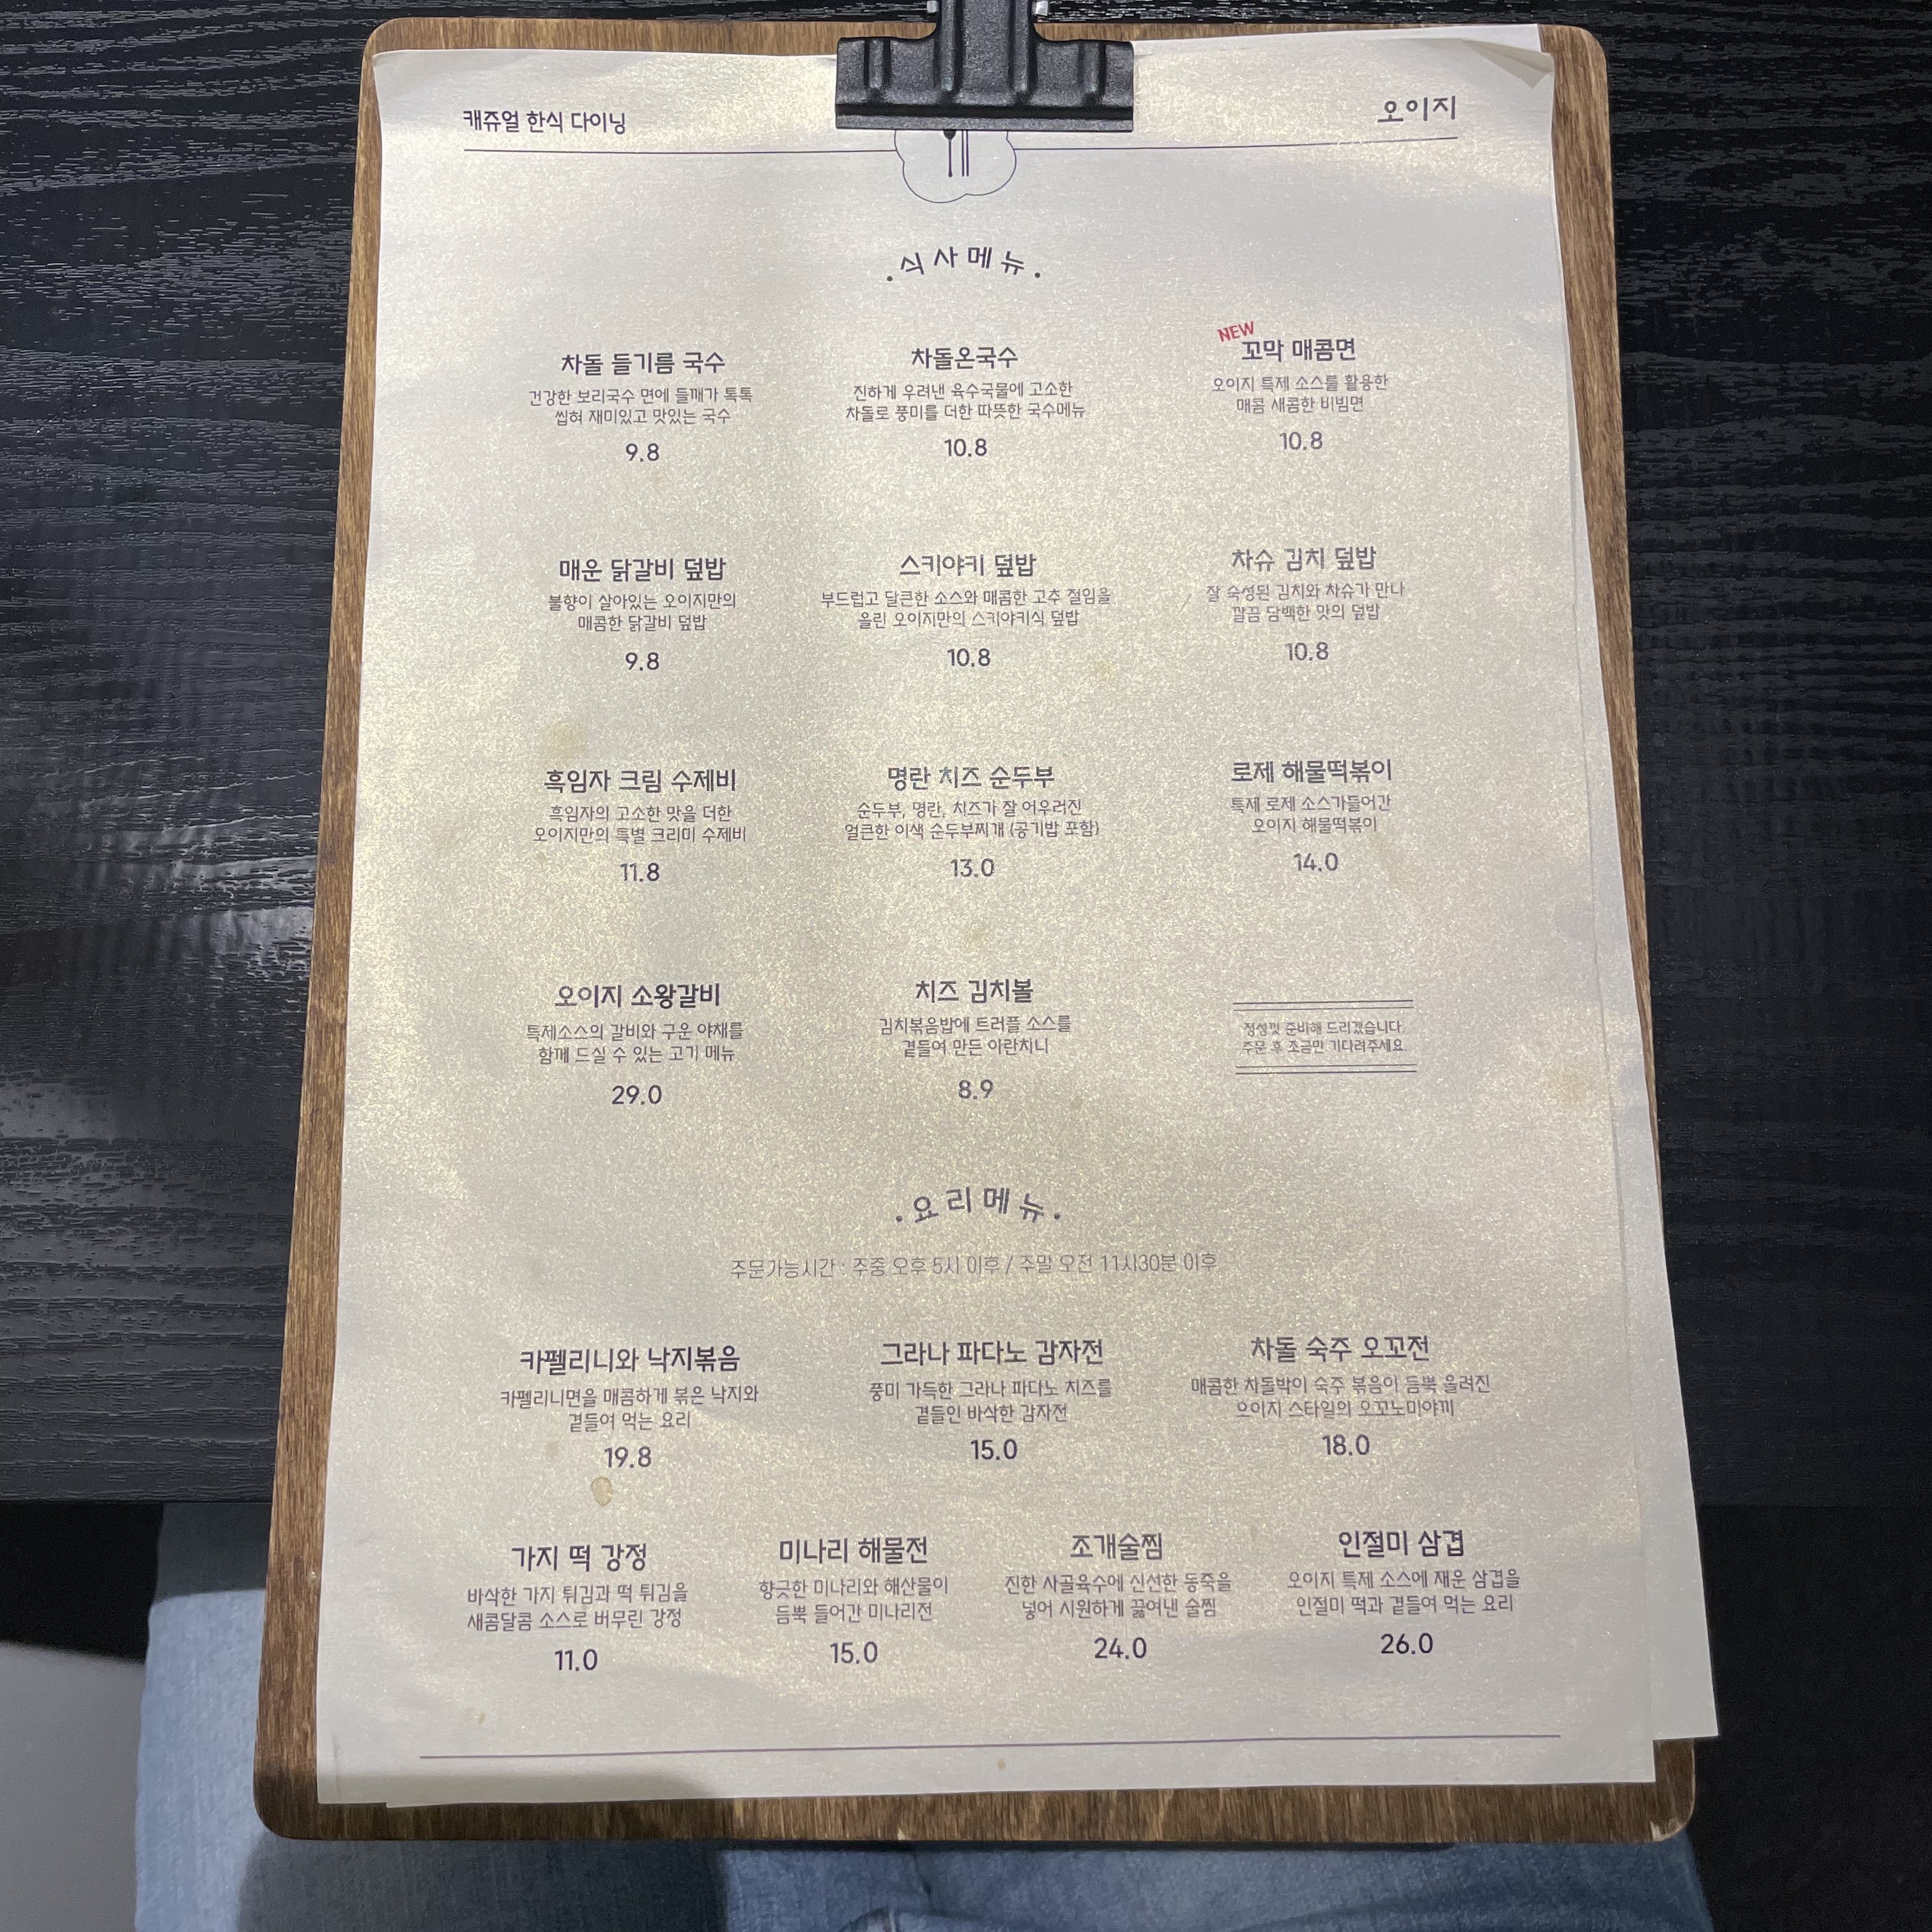 캐쥬얼 한식 다이닝
오이지
식사메뉴
차돌 들기름 국수
건강한 보리국수 면에 들깨가 톡톡
씹혀 재미있고 맛있는 국수
9.8
차돌온국수
진하게 우려낸 육수국물에 고소한
차돌로 풍미를 더한 따뜻한 국수메뉴
10.8
NEW
꼬막 매콤면
오이지 특제 소스를 활용한
매콤 새콤한 비빔면
10.8
매운 닭갈비 덮밥
불향이 살아있는 오이지만의
매콤한 닭갈비 덮밥
9.8
스키야키 덮밥
부드럽고 달큰한 소스와 매콤한 고추 절임을
올린 오이지만의 스키야키식 덮밥
10.8
차슈 김치 덮밥
잘 숙성된 김치와 차슈가 만나
깔끔 담백한 맛의 덮밥
10.8
흑임자 크림 수제비
흑임자의 고소한 맛을 더한
오이지만의 특별 크리미 수제비
11.8
명란 치즈 순두부
순두부, 명란, 치즈가 잘 어우러진
얼큰한 이색 순두부찌개 (공기밥 포함)
13.0
로제 해물떡볶이
특제 로제 소스가들어간
오이지 해물떡볶이
14.0
오이지 소왕갈비
특제소스의 갈비와 구운 야채를
함께 드실 수 있는 고기 메뉴
29.0
치즈 김치볼
김치볶음밥에 트러플 소스를
곁들여 만든 아란치니
8.9
정성껏 준비해 드리겠습니다.
주문 후 조금만 기다려주세요.
요리메뉴
주문가능시간 : 주중 오후 5시 이후 / 주말 오전 11시30분 이후
카펠리니와 낙지볶음
카펠리니면을 매콤하게 볶은 낙지와
곁들여 먹는 요리
19.8
그라나 파다노 감자전
풍미 가득한 그라나 파다노 치즈를
곁들인 바삭한 감자전
15.0
차돌 숙주 오꼬전
매콤한 차돌박이 숙주 볶음이 듬뿍 올려진
오이지 스타일의 오꼬노미야끼
18.0
가지 떡 강정
바삭한 가지 튀김과 떡 튀김을
새콤달콤 소스로 버무린 강정
11.0
미나리 해물전
향긋한 미나리와 해산물이
듬뿍 들어간 미나리전
15.0
조개술찜
진한 사골육수에 신선한 동죽을
넣어 시원하게 끓여낸 술찜
24.0
인절미 삼겹
오이지 특제 소스에 재운 삼겹을
인절미 떡과 곁들여 먹는 요리
26.0